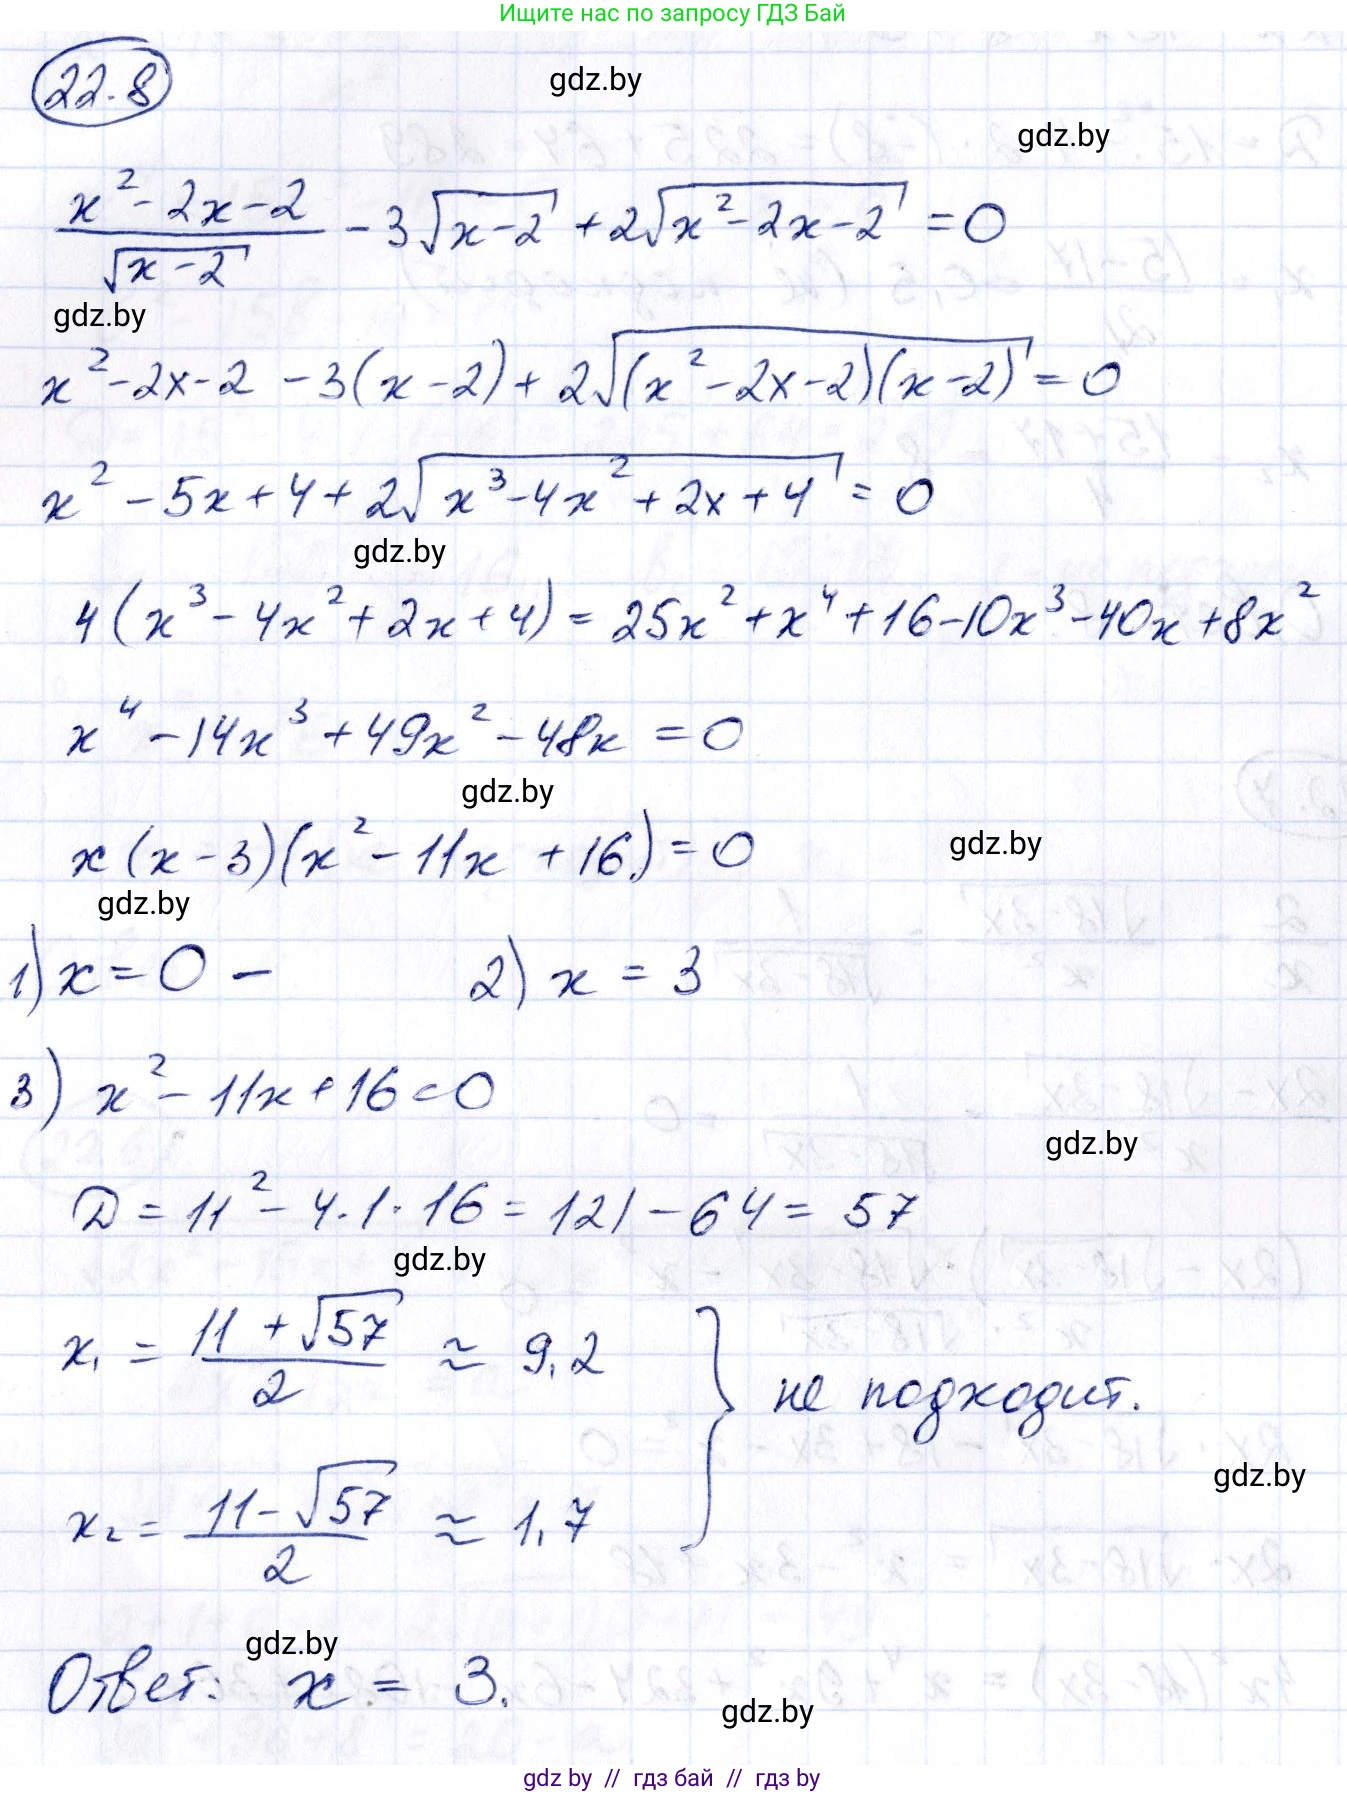 Ищите нас по запросу ГДЗ Бай
22.8
gdz.by
gdz.by
(x² - 2x - 2)/√(x - 2) - 3√(x - 2) + 2√(x² - 2x - 2) = 0
gdz.by
x² - 2x - 2 - 3(x - 2) + 2√((x² - 2x - 2)(x - 2)) = 0
x² - 5x + 4 + 2√(x³ - 4x² + 2x + 4) = 0
gdz.by
4(x³ - 4x² + 2x + 4) = 25x² + x⁴ + 16 - 10x³ - 40x + 8x²
x⁴ - 14x³ + 49x² - 48x = 0
gdz.by
x(x - 3)(x² - 11x + 16) = 0
gdz.by
gdz.by
1) x = 0 - 2) x = 3
3) x² - 11x + 16 = 0
gdz.by
D = 11² - 4·1·16 = 121 - 64 = 57
gdz.by
x₁ = (11 + √57)/2 ≈ 9,2
} не подходит.
gdz.by
x₂ = (11 - √57)/2 ≈ 1,7
gdz.by
Ответ: x = 3.
gdz.by
gdz by // гдз бай // гдз by